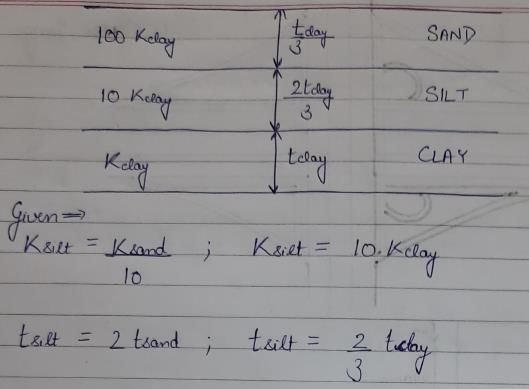 100 Kclay tclay/3 SAND
10 Kclay 2tclay/3 SILT
Kclay tclay CLAY
Given ⇒
Ksilt = Ksand/10 ; Ksilt = 10.Kclay
tsilt = 2 tsand ; tsilt = 2/3 tclay